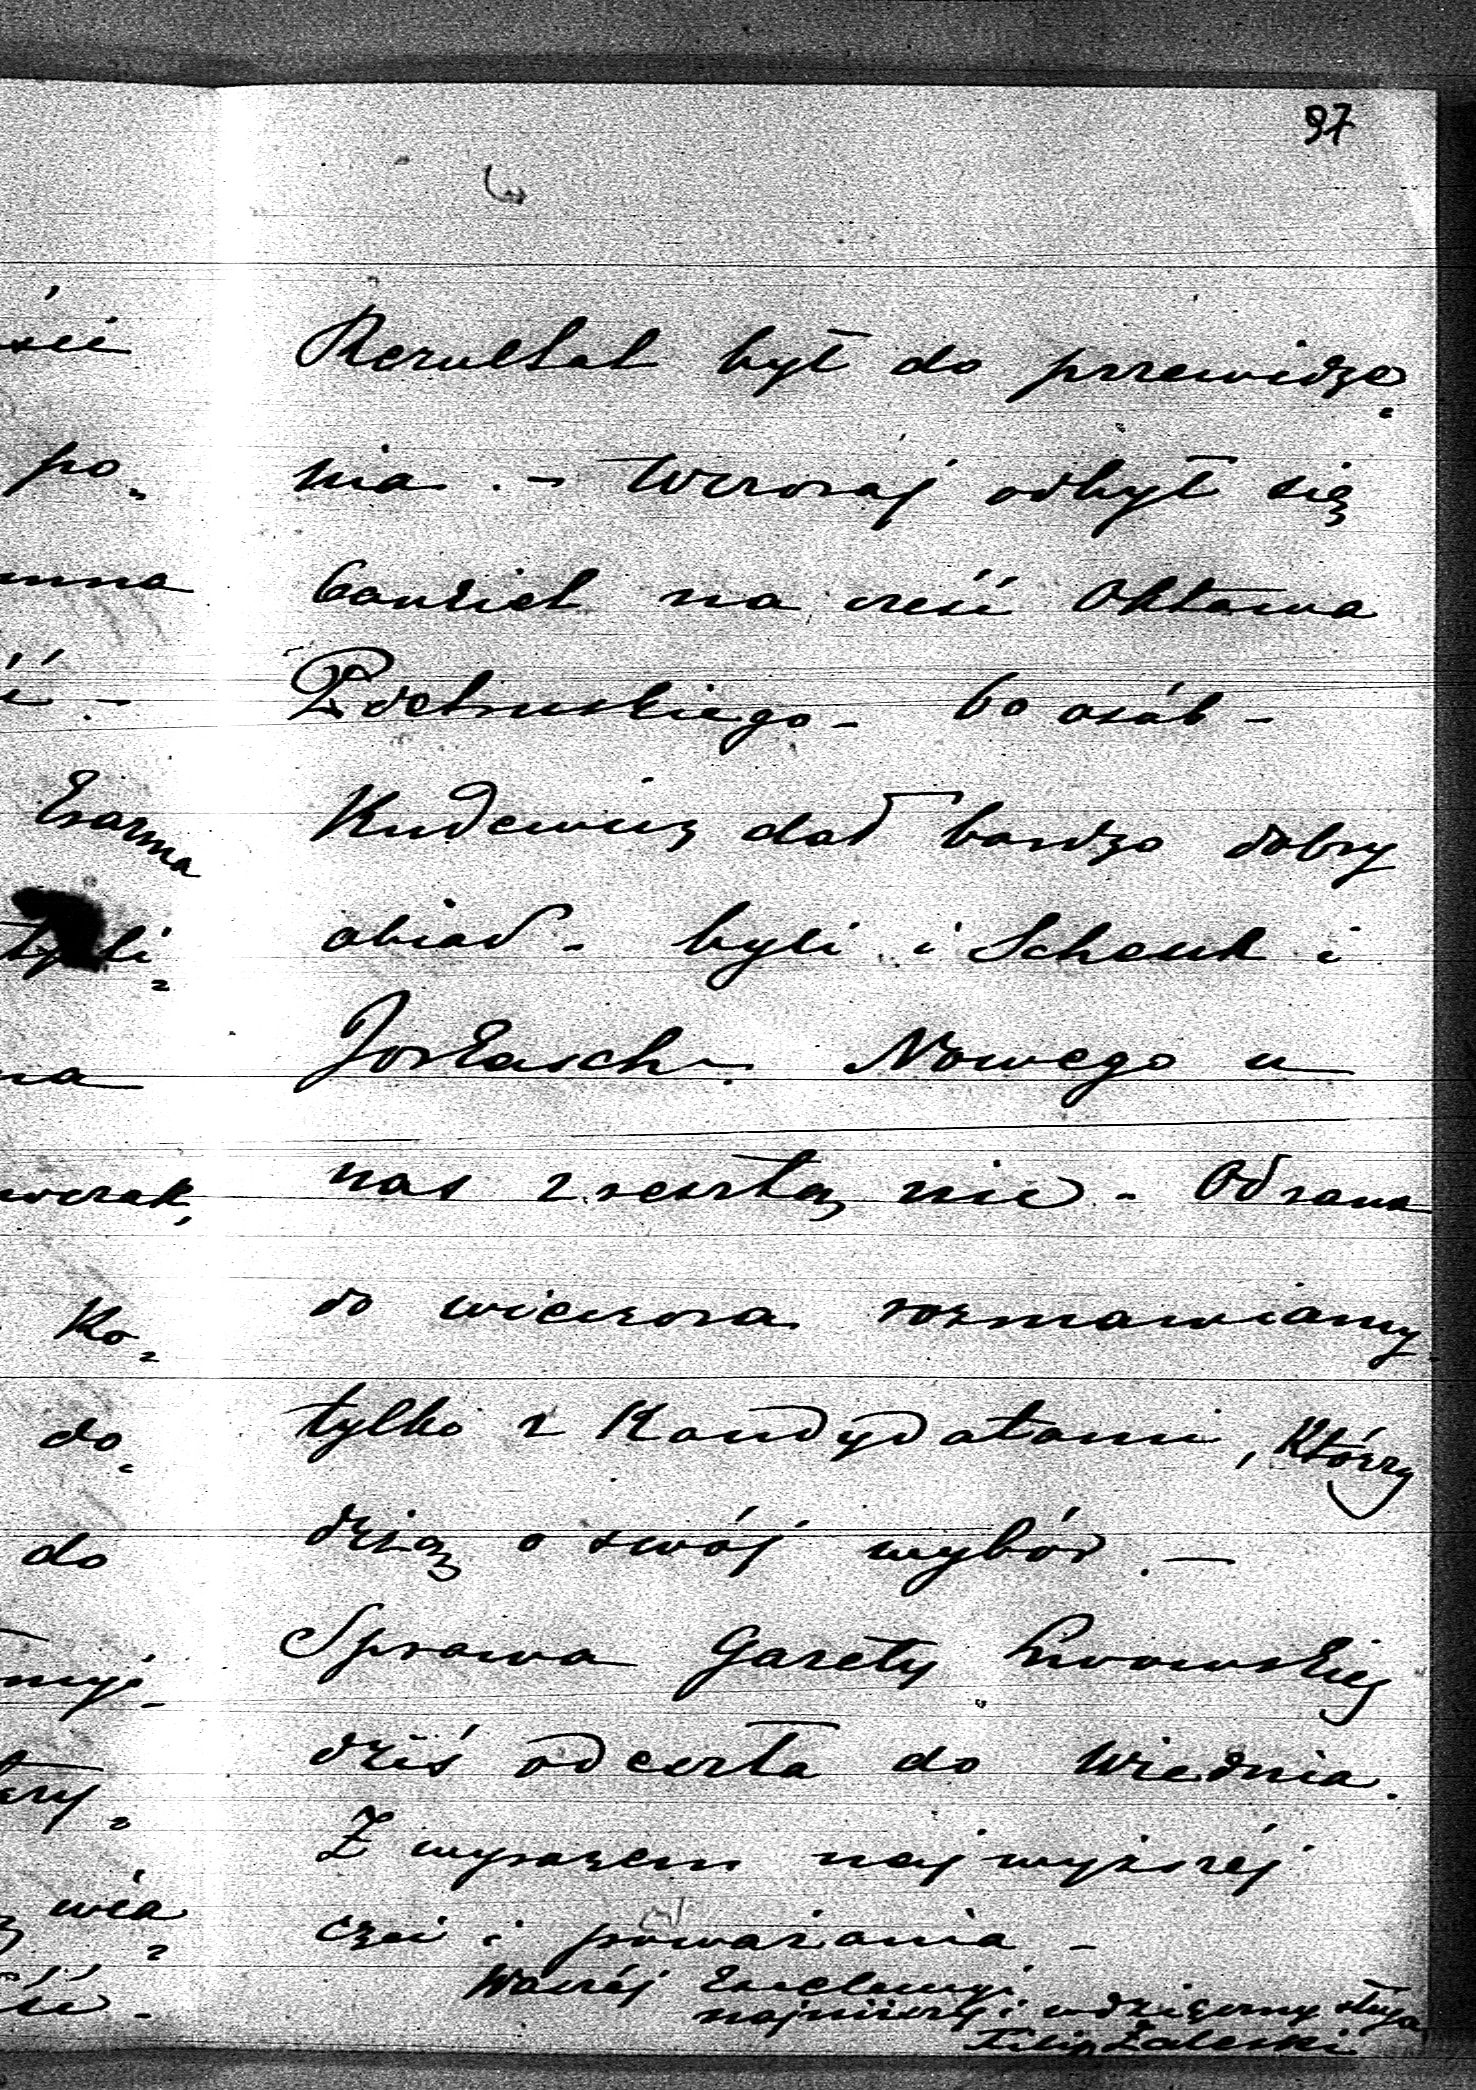 97
Rezultat był do przewidze-
nia. - Wczoraj odbył się
bankiet na cześć Oktawa
Pietruskiego - 60 osób -
dał bardzo dobry
obiad - byli i Schenk i
Jorkasch - Nowego u
nas zresztą nic - Od rana
do wieczora rozmawiamy
tylko z Kandydatami, którzy
o swój wybór. -
Sprawa Gazety Lwowskiej
dziś odeszła do Wiednia.
Z wyrazem najwyższéj
czci i poważania -
Waszéj Excelencyi
najniższy i wdzięczny sługa
Filip Zaleski
po-
Erazma
na
Ko-
do-
do